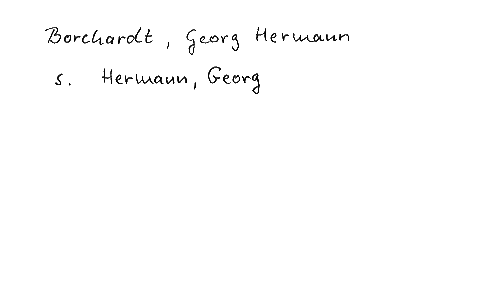 Borchardt, Georg Hermann
s. Hermann, Georg